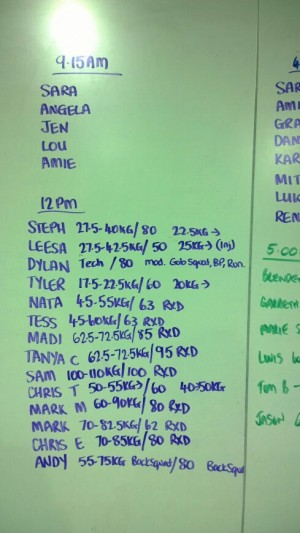 9.15AM
SARA
ANGELA
JEN
LOU
AMIE
12PM
STEPH 27.5-40KG/80 22.5KG→
LEESA 27.5-42.5KG/50 25KG→ (Inj)
DYLAN Tech /80 mod. Gob Squad, BP, Ron.
TYLER 17.5-22.5KG/60 20KG→
NATA 45-55KG/63 RXD
TESS 45-60KG/63 RXD
MADI 62.5-72.5KG/85 RXD
TANYA C 62.5-72.5KG/95 RXD
SAM 100-110KG/100 RXD
CHRIS T 50-55KG→/60 40→50KG
MARK M 60-90KG/80 RXD
MARK 70-82.5KG/62 RXD
CHRIS E 70-85KG/80 RXD
ANDY 55-75KG BackSquad/80 BackSquad
4
SAR
AMI
GRA
DAN
KAR
MIT
LUK
REN
5.00
BLENDE
GARRETH
MARIE S
LUIS
Tom B -
JASON